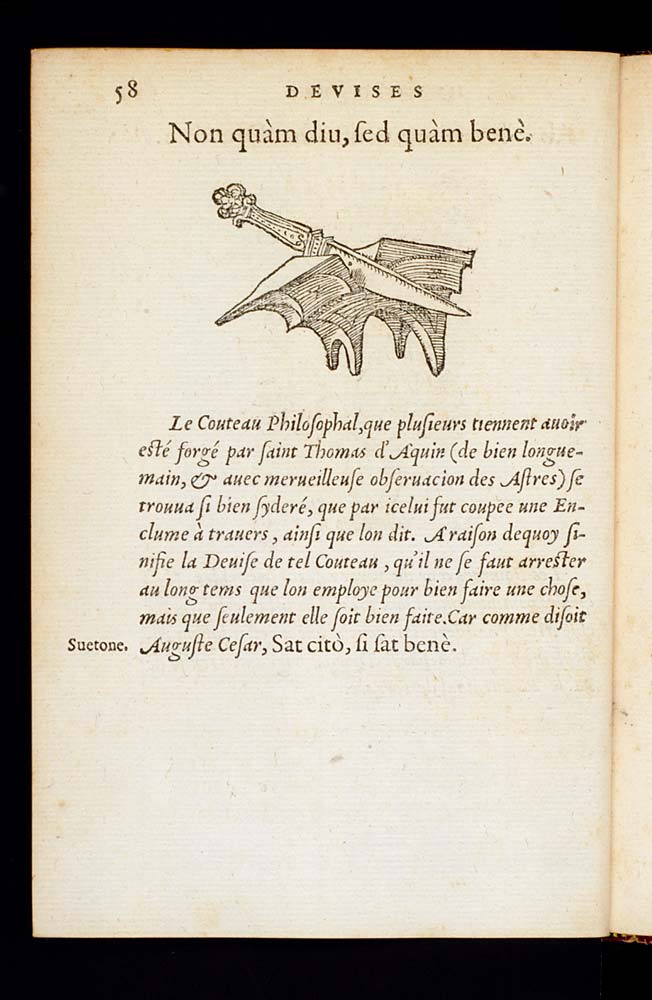 58 DEVISES
Non quàm diu, ſed quàm benè.
Le Couteau Philoſophal, que pluſieurs tiennent auoir
eſté forgé par ſaint Thomas d'Aquin (de bien longue-
main, & auec merueilleuſe obſeruacion des Aſtres) ſe
trouua ſi bien ſyderé, que par icelui fut coupee une En-
clume à trauers, ainſi que lon dit. A raiſon dequoy ſi-
nifie la Deuiſe de tel Couteau, qu'il ne ſe faut arreſter
au long tems que lon employe pour bien faire une choſe,
mais que ſeulement elle ſoit bien faite. Car comme diſoit
Suetone. Auguſte Ceſar, Sat citò, ſi ſat benè.